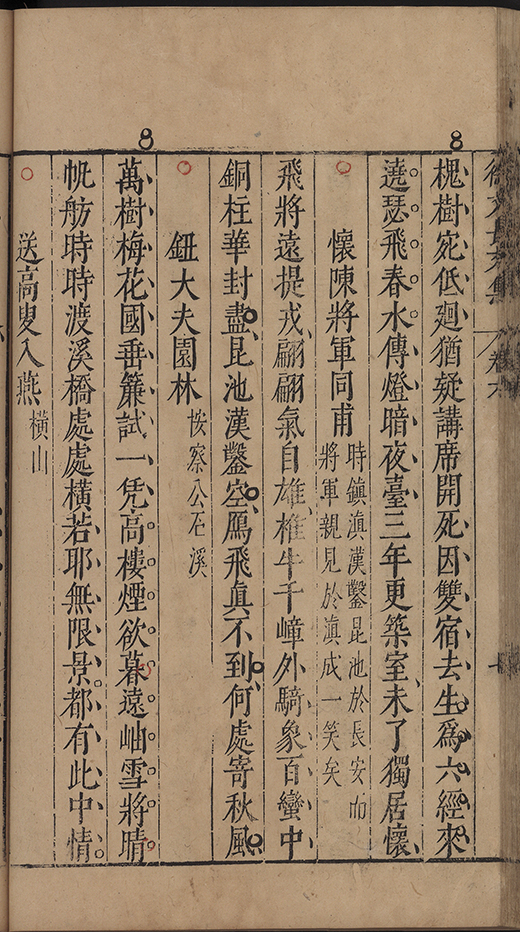 8
8
槐樹宛低迴猶疑講席開死因雙宿去生爲六經來
遶瑟飛春水傳燈暗夜臺三年更築室未了獨居懷
懷陳將軍同甫
時鎮滇漢鑿昆池於長安而
將軍親見於滇成一笑矣
飛將遠提戎翩翩氣自雄椎牛千嶂外騎象百蠻中
銅柱華封盡昆池漢鑿空鴈飛眞不到何處寄秋風
鈕大夫園林
按察公石溪
萬樹梅花國垂簾試一凭高樓煙欲暮遠岫雪將晴
帆舫時時渡溪橋處處橫若耶無限景都有此中情
送高叟入燕
橫山